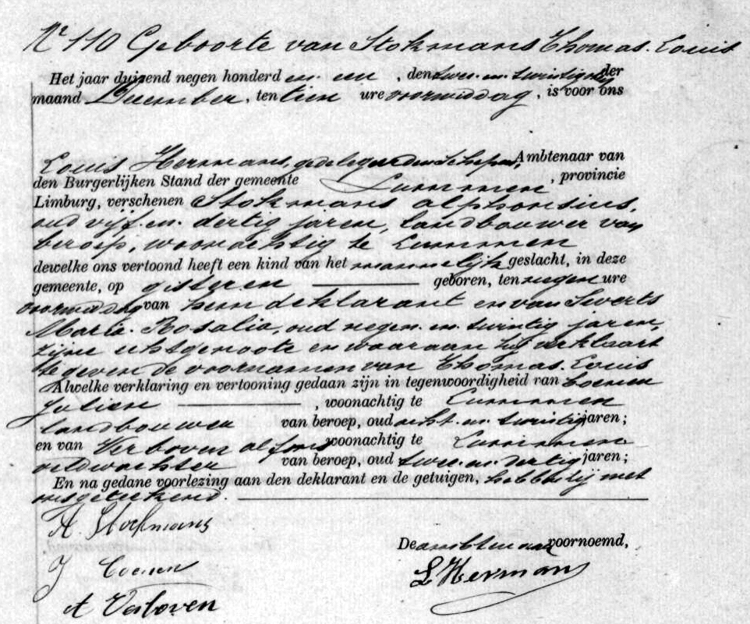 N° 110 Geboorte van Stokmans Thomas Louis
Het jaar duizend negen honderd en een, den twee en twintigsten der
maand December, ten tien ure voormiddag, is voor ons
Louis Hermans, gedelegeerden schepen, Ambtenaar van
den Burgerlijken Stand der gemeente Lummen, provincie
Limburg, verschenen Stokmans Alphonsius,
oud vijf en dertig jaren, landbouwer van
beroep, woonachtig te Lummen
dewelke ons vertoond heeft een kind van het mannelijk geslacht, in deze
gemeente, op gisteren geboren, ten negen ure
voormiddag van hem deklarant en van Swerts
Maria Rosalia, oud negen en twintig jaren,
zijne echtgenoote en waaraan hij verklaart
te geven de voornamen van Thomas Louis
Alwelke verklaring en vertooning gedaan zijn in tegenwoordigheid van Coenen
Julien, woonachtig te Lummen
landbouwer van beroep, oud acht en twintig jaren;
en van Verboven Alfons woonachtig te Lummen
veldwachter van beroep, oud twee en dertig jaren;
En na gedane voorlezing aan den deklarant en de getuigen, hebben zij met
ons geteekend.
A. Stokmans
De ambtenaar voornoemd,
J Coenen
L Hermans
A Verboven